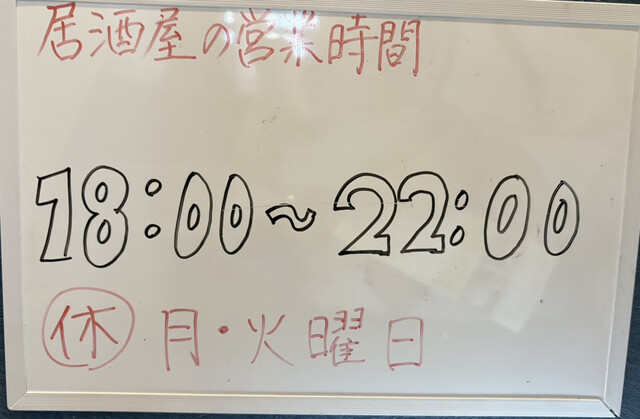 居酒屋の営業時間
18:00~22:00
㊡ 月・火曜日